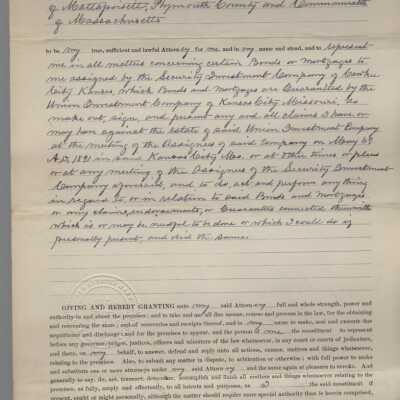 of Mattapoisett, Plymouth County and Commonwealth
of Massachusetts
to be my true, sufficient and lawful Attorney, for me, and in my name and stead, and to represent
me in all matters concerning certain Bonds or Mortgages to
me assigned by the Security Investment Company of Cawker
City Kansas, which Bonds and Mortgages are Guaranteed by the
Union Investment Company of Kansas City Missouri. To
make out, sign, and present any and all claims I have or
may have against the estate of said Union Investment Company
at the meeting of the Assignees of said Company on May
A.D. 1891 in said Kansas City Mo. or at other times or places
or at any meeting of the Assignees of the Security Investment
Company aforesaid, and to do, act and perform any thing
in regard to, or in relation to said Bonds and Mortgages
or any claims, endorsements, or Guarantees connected therewith
which is or may be needful to be done or which I could do if
personally present, and did the same.
GIVING AND HEREBY GRANTING unto my said Attorney full and whole strength, power and
authority in and about the premises; and to take and use all due means, course and process in the law, for the obtaining
and recovering the same; and of recoveries and receipts thereof, and in my name to make, seal and execute due
acquittance and discharge; and for the premises to appear, and the person of me the constituent to represent
before any governor, judges, justices, officers and ministers of the law whatsoever, in any court or courts of judicature,
and there, on my behalf, to answer, defend and reply unto all actions, causes, matters and things whatsoever,
relating to the premises. Also, to submit any matter in dispute, to arbitration or otherwise; with full power to make
and substitute one or more attorneys under my said Attorney and the same again at pleasure to revoke. And
generally to say, do, act, transact, determine, accomplish and finish all matters and things whatsoever relating to the
premises, as fully, amply and effectually, to all intents and purposes, as I the said constituent if
present, ought or might personally, although the matter should require more special authority than is herein comprised,